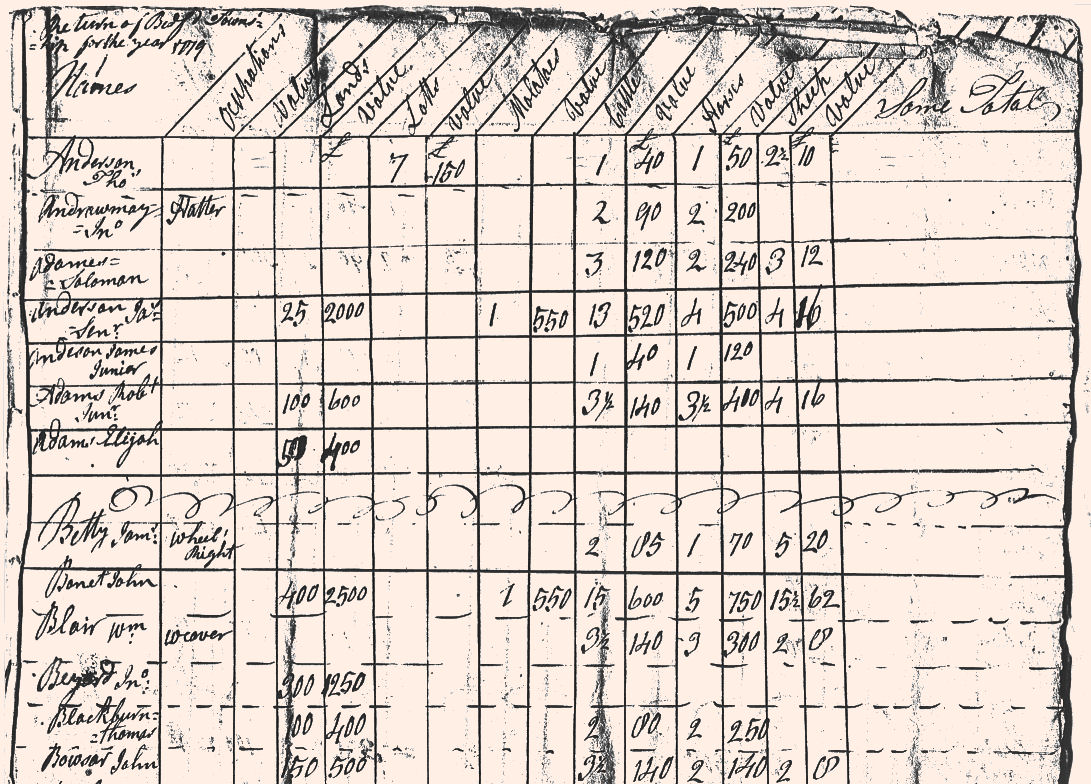 Return of Bedf Towns=
=hip for the year 1779
Names Occupations Value Lands Value Lotts Value Malatoes Value Cattle Value Horses Value Sheep Value Some Total
£ £ £ £ £
Anderson 7 150 1 40 1 50 2½ 10
Thos
Andrawmay= Hatter 2 90 2 200
=Jno
Adames= 3 120 2 240 3 12
=Soloman
Anderson Jas= 25 2000 1 550 13 520 4 500 4 16
=Senr
Andeson James 1 40 1 120
Junior
Adams Robt 100 600 3½ 140 3½ 400 4 16
Junr
Adams Elijah 50 400
Betty Jams: Wheel, 2 85 1 70 5 20
Right
Bonet John 400 2500 1 550 15 600 5 750 15½ 62
Blair Wm weaver 3½ 140 3 300 2 8
Jno: 300 1250
Blackburn= 400 2 80 2 250
=thomas
Bowsar John 150 500 3½ 140 2 140 2 8